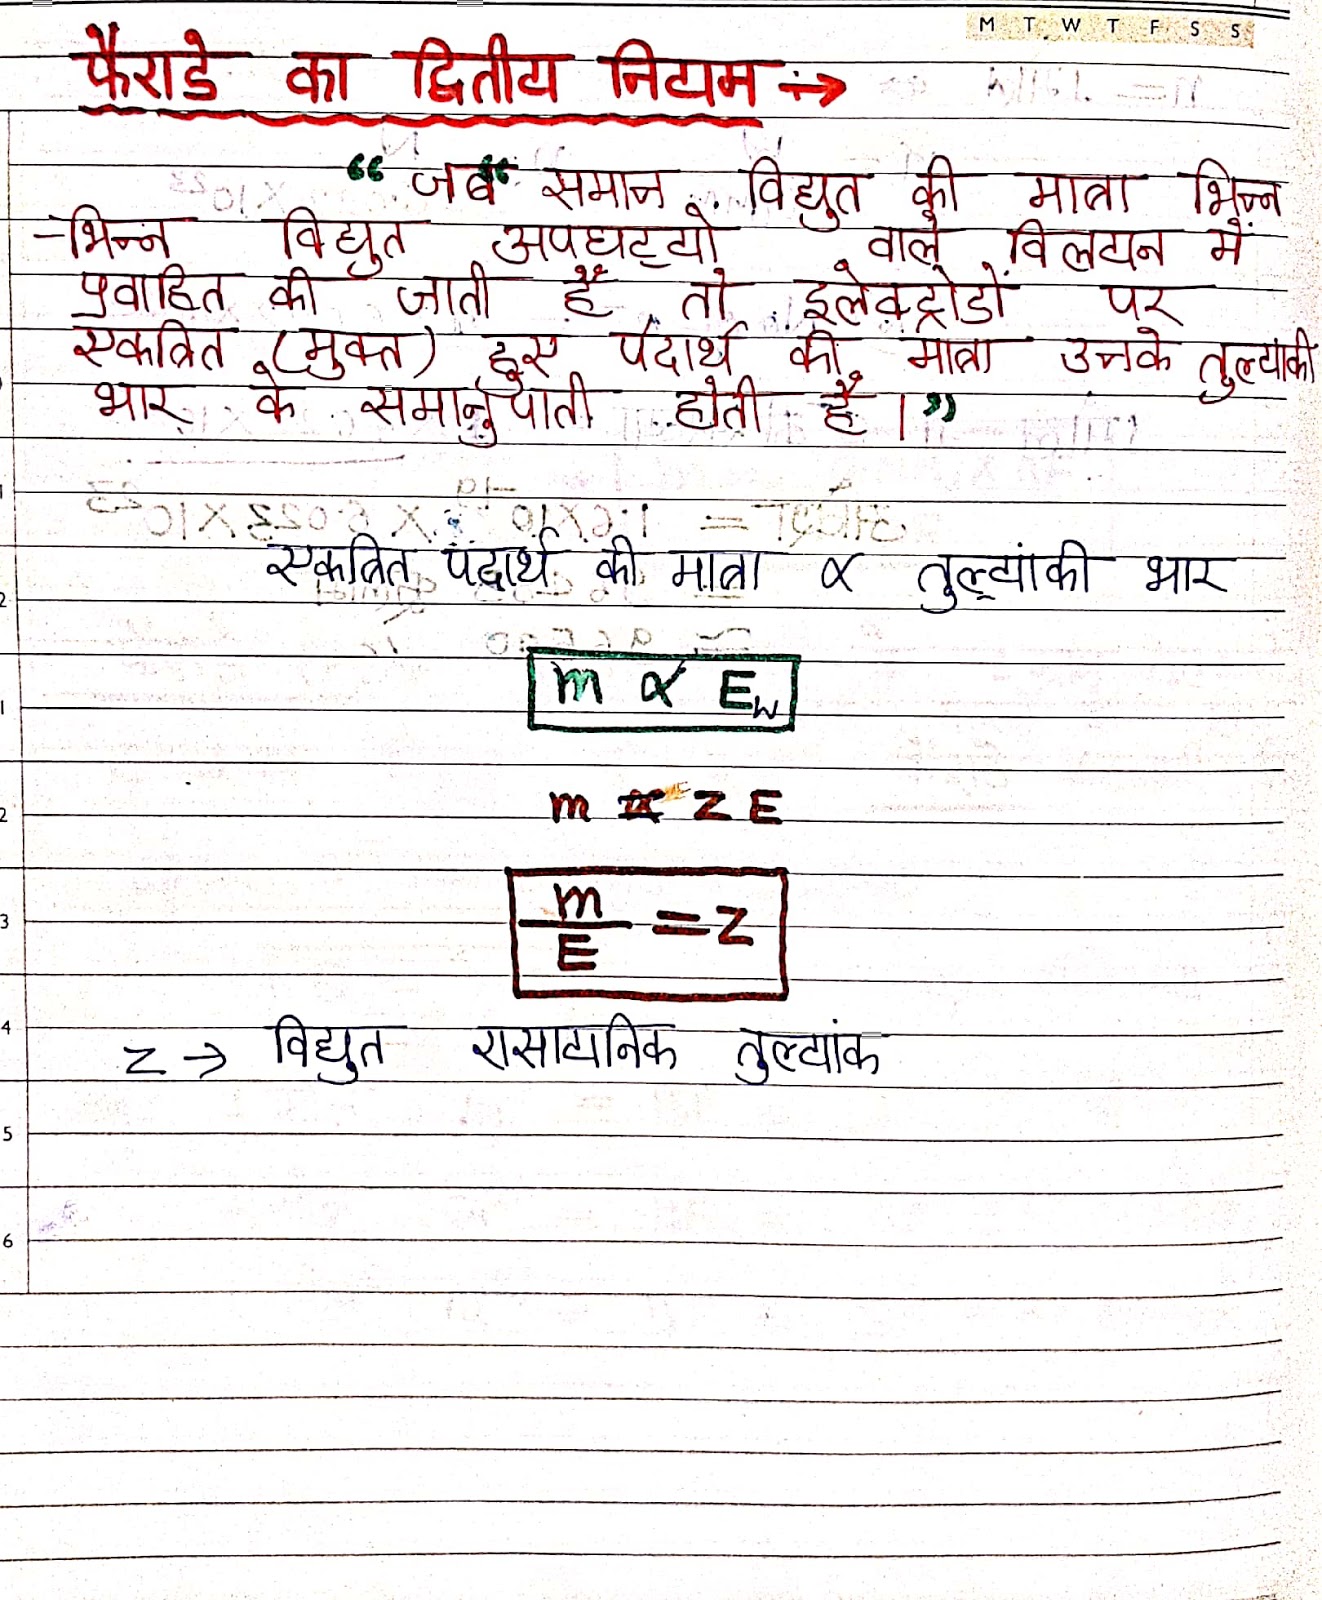 M T W T F S S
फैराडे का द्वितीय नियम ÷→
“ जब “ समान विद्युत की मात्रा भिन्न
-भिन्न विद्युत अपघट्यो वाले विलयन में
प्रवाहित की जाती है तो इलेक्ट्रोडों पर
एकत्रित (मुक्त) हुए पदार्थ की मात्रा उनके तुल्यांकी
भार के समानुपाती होती है।”
एकत्रित पदार्थ की मात्रा ∝ तुल्यांकी भार
m ∝ E_w
m = Z E
m/E = Z
Z → विद्युत रासायनिक तुल्यांक
1
2
1
2
3
4
5
6